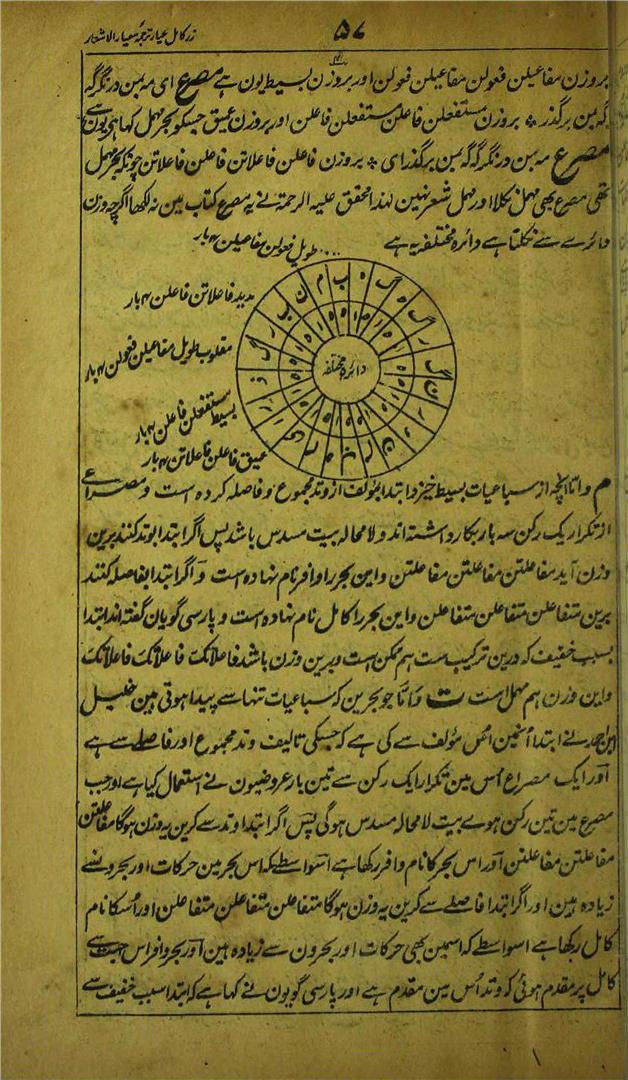 زر کامل عیار ترجمہ معیار الاشعار
۵۷
بروزن مفاعیلن فعولن مفاعیلن فعولن اور بروزن بسیط یون ہے مصرع ای مہ بمن در نگر گہ
گہ بمن بر گذر ٭ بروزن مستفعلن فاعلن مستفعلن فاعلن اور بروزن عمیق جسکو بحر مہمل کہا ہی یون ہے
مصرع مہ بمن در نگر گہ گہ بمن بر گذر ای ٭ بروزن فاعلن فاعلاتن فاعلن فاعلاتن چونکہ بحر مہمل
تھی مصرع بھی مہمل نکلا اور مہمل شعر نہین لہذا محقق علیہ الرحمۃ نے یہ مصرع کتاب مین نہ لکھا اگرچہ وزن
دائرے سے نکلتا ہے دائرہ مختلفہ یہ ہے
طویل فعولن مفاعیلن ۴ بار
مدید فاعلاتن فاعلن ۴ بار
مقلوب طویل مفاعیلن فعولن ۴ بار
بسیط مستفعلن فاعلن ۴ بار
عمیق فاعلن فاعلاتن ۴ بار
دائرہ مختلفہ
م و اما آنچہ از سباعیات بسیط خیزد ابتدا بمؤلف از وتد مجموع و فاصلہ کردہ است و مصراعے
از تکرار یک رکن سہ بار بکار داشتہ اند و لا محالہ بیت مسدس باشد پس اگر ابتدا بوتد کنند برین
وزن آید مفاعلتن مفاعلتن مفاعلتن و این بحر را وافر نام نہادہ است و اگر ابتدا بفاصلہ کنند
برین متفاعلن متفاعلن متفاعلن و این بحر را کامل نام نہادہ است و پارسی گویان گفتہ اند ابتدا
بسبب خفیف کہ درین ترکیب ست ہم ممکن است و برین وزن باشد فاعلاتک فاعلاتک فاعلاتک
و این وزن ہم مہمل است ت و اما جو بحرین کہ سباعیات تنہا سے پیدا ہوتی ہین خلیل
ابن احمد نے ابتدا انہین اس مؤلف سے کی ہے کہ جسکی تالیف وتد مجموع اور فاصلے سے ہے
اور ایک مصراع اس مین تکرار ایک رکن سے تین بار عروضیون نے استعمال کیا ہے اور جب
مصرع مین تین رکن ہوے بیت لا محالہ مسدس ہوگی پس اگر ابتدا وتد سے کرین یہ وزن ہوگا مفاعلتن
مفاعلتن مفاعلتن اور اس بحر کا نام وافر رکھا ہے اسواسطے کہ اس بحر مین حرکات اور بحرونسے
زیادہ ہین اور اگر ابتدا فاصلے سے کرین یہ وزن ہوگا متفاعلن متفاعلن متفاعلن اور اسکا نام
کامل رکھا ہے اسواسطے کہ اسمین بھی حرکات اور بحرون سے زیادہ ہین اور بحر وافر اس جہت سے
کامل پر مقدم ہوئی کہ وتد اس مین مقدم ہے اور پارسی گویون نے کہا ہے کہ ابتدا سبب خفیف سے